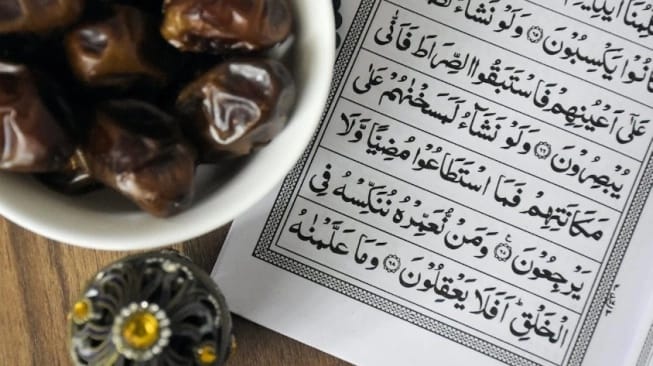 كَانُوْا يَكْسِبُوْنَ ۝۶۵ وَلَوْ نَشَآءُ
عَلٰٓى اَعْيُنِهِمْ فَاسْتَبَقُوا الصِّرَاطَ فَاَنّٰى
يُبْصِرُوْنَ ۝۶۶ وَلَوْ نَشَآءُ لَمَسَخْنٰهُمْ عَلٰى
مَكَانَتِهِمْ فَمَا اسْتَطَاعُوْا مُضِيًّا وَّلَا
يَرْجِعُوْنَ ۝۶۷ وَمَنْ نُّعَمِّرْهُ نُنَكِّسْهُ فِى
الْخَلْقِ ؕ اَفَلَا يَعْقِلُوْنَ ۝۶۸ وَمَا عَلَّمْنٰهُ